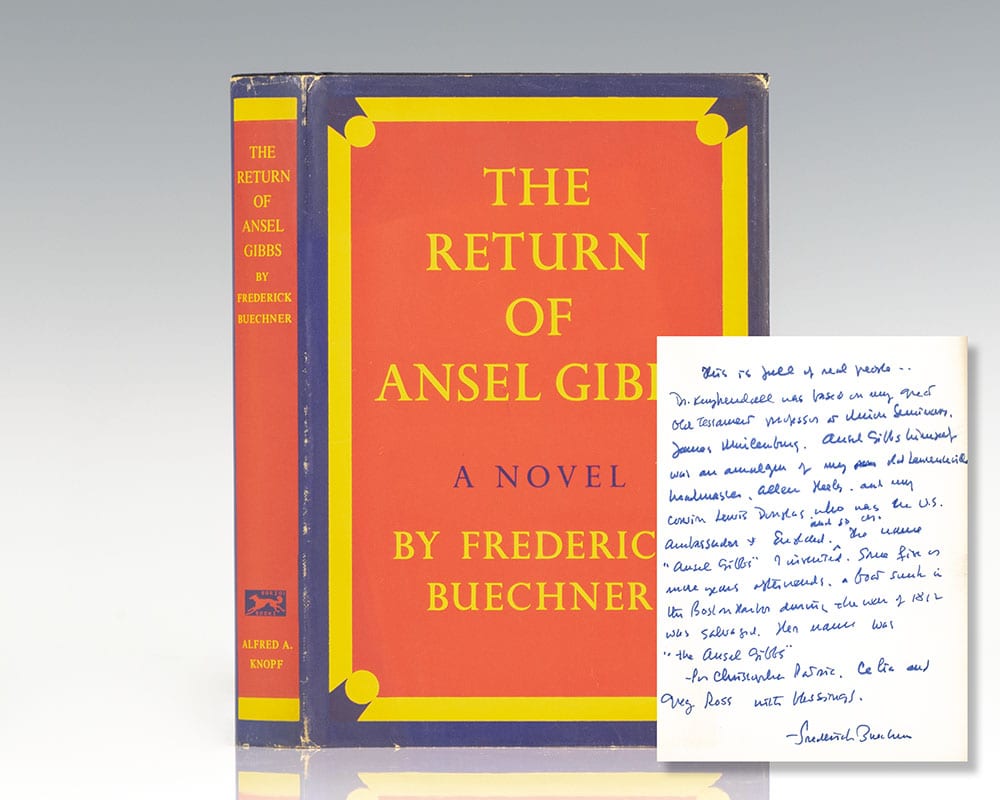 THE
RETURN
OF
ANSEL
GIBBS
BY
FREDERICK
BUECHNER
BORZOI
BOOKS
ALFRED A.
KNOPF
THE
RETURN
OF
ANSEL GIBB
A NOVEL
BY FREDERIC
BUECHNER
This is full of real people --
Dr. Kuykendall was based on my great
Old Testament professor at Union Seminary,
James Muilenburg. Ansel Gibbs himself
was an amalgam of my old Lawrenceville
headmaster, Allen Heely, and my
cousin Lewis Douglas who was the U.S.
ambassador to England. and so on. The name
"Ansel Gibbs" I invented. Some five or
more years afterwards, a boat sunk in
the Boston Harbor during the war of 1812
was salvaged. Her name was
"the Ansel Gibbs"
- For Christopher, Celia and
Greg Ross with blessings.
- Frederick Buechner